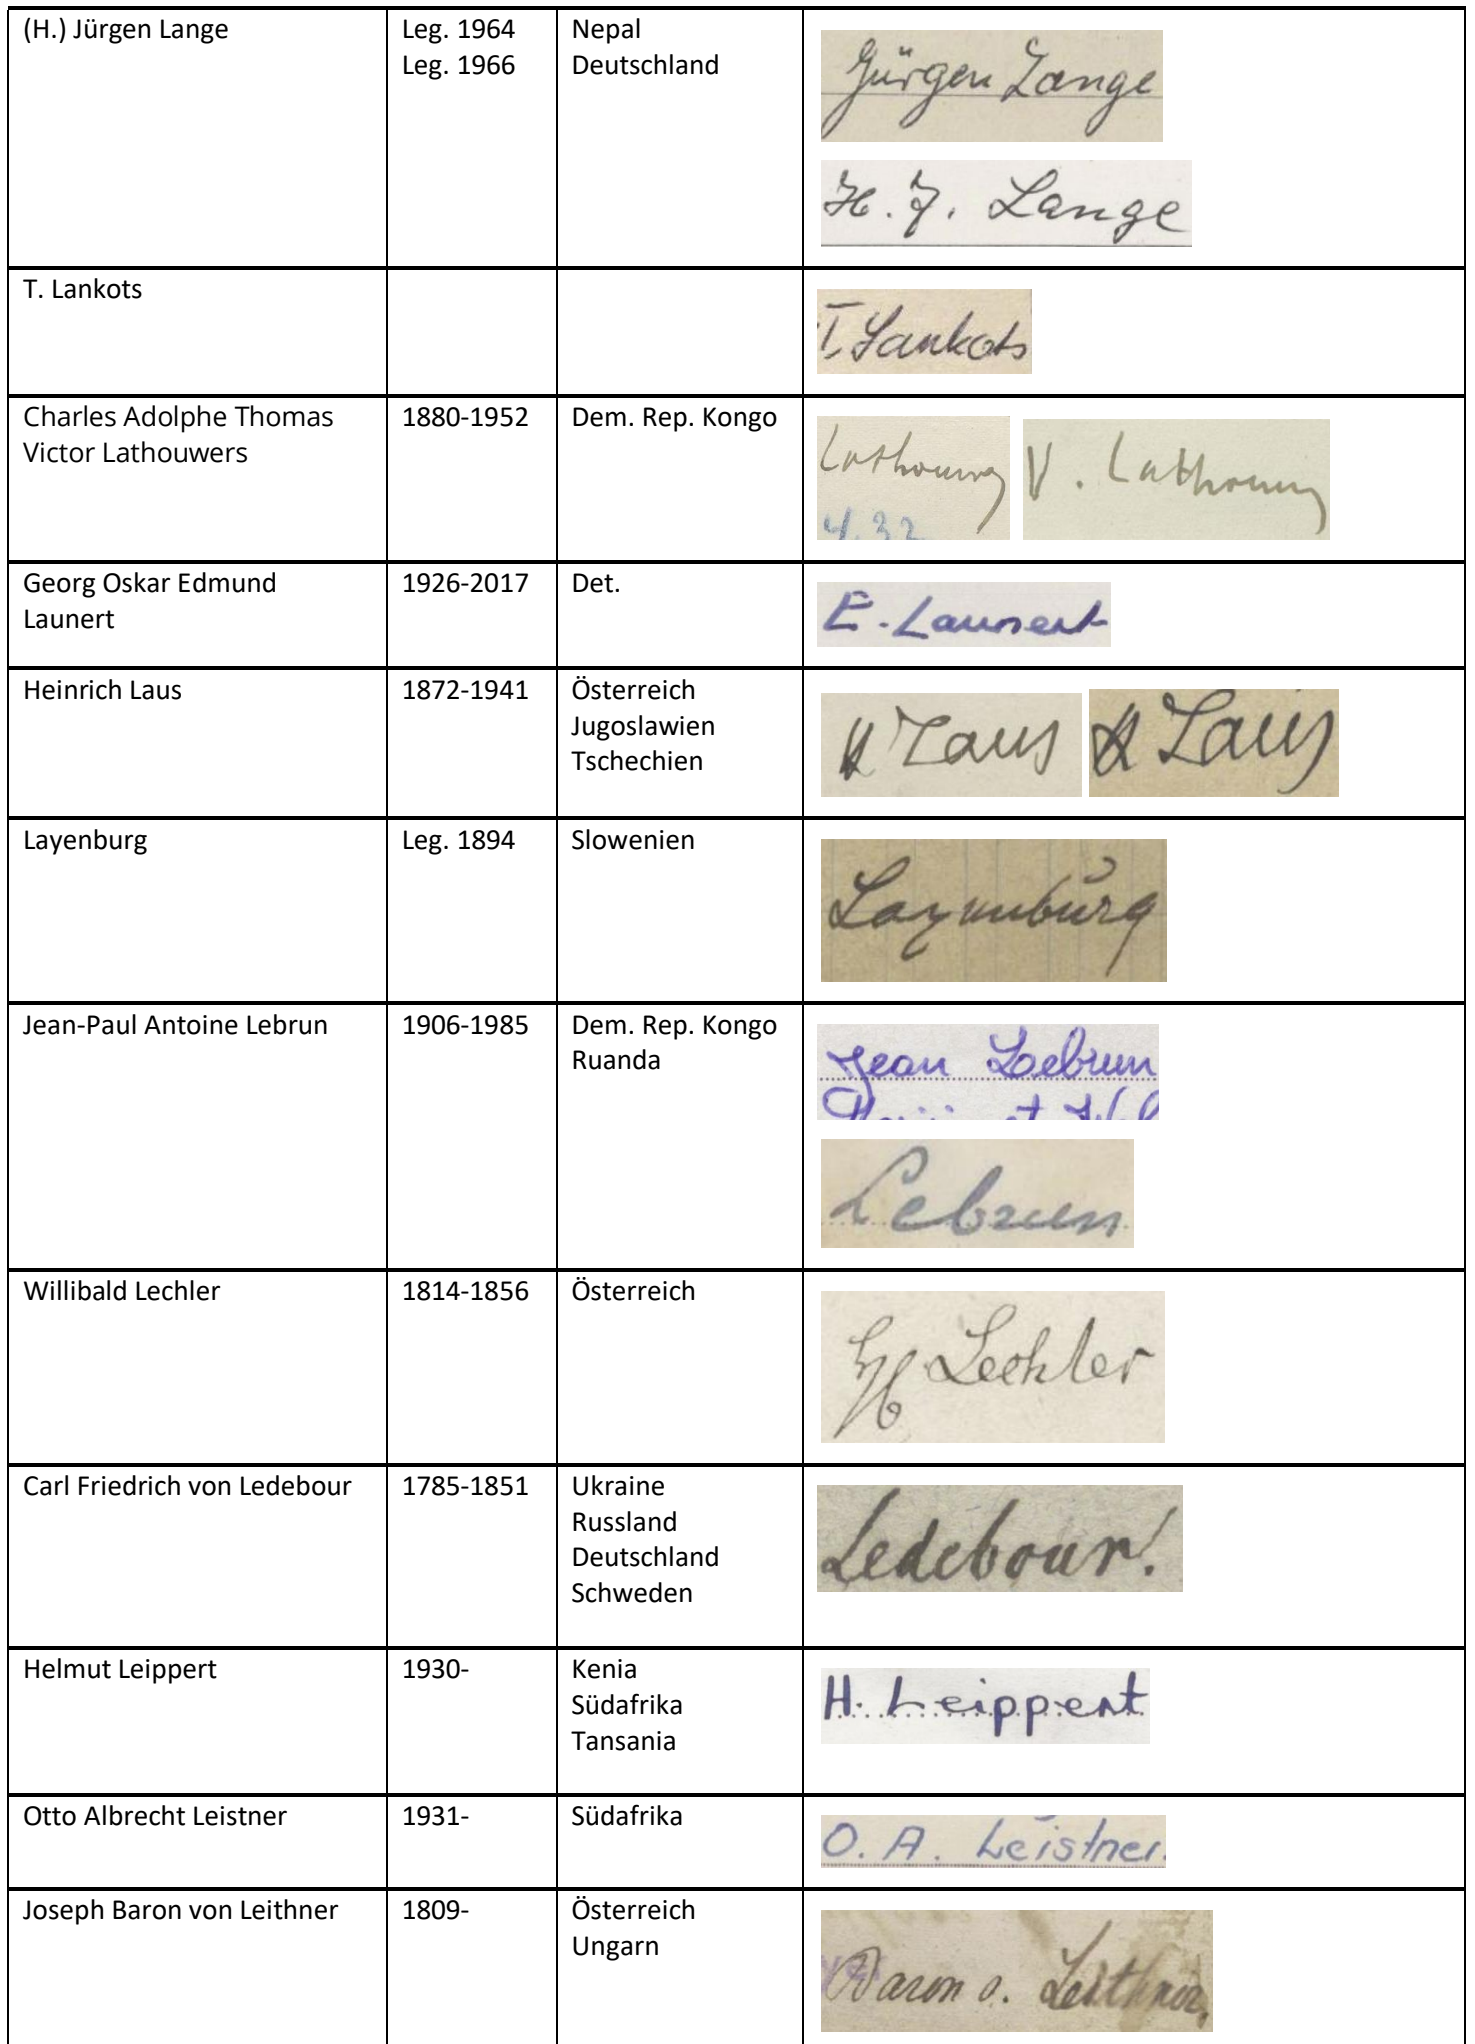 (H.) Jürgen Lange
Leg. 1964
Leg. 1966
Nepal
Deutschland
Jürgen Lange
H. J. Lange
T. Lankots
T. Lankots
Charles Adolphe Thomas
Victor Lathouwers
1880-1952
Dem. Rep. Kongo
Lathouwers
4.32
V. Lathouwers
Georg Oskar Edmund
Launert
1926-2017
Det.
E. Launert
Heinrich Laus
1872-1941
Österreich
Jugoslawien
Tschechien
H Laus
H Laus
Layenburg
Leg. 1894
Slowenien
Layenburg
Jean-Paul Antoine Lebrun
1906-1985
Dem. Rep. Kongo
Ruanda
Jean Lebrun
Lebrun
Willibald Lechler
1814-1856
Österreich
W Lechler
Carl Friedrich von Ledebour
1785-1851
Ukraine
Russland
Deutschland
Schweden
Ledebour!
Helmut Leippert
1930-
Kenia
Südafrika
Tansania
H. Leippert
Otto Albrecht Leistner
1931-
Südafrika
O. A. Leistner.
Joseph Baron von Leithner
1809-
Österreich
Ungarn
Baron v. Leithner